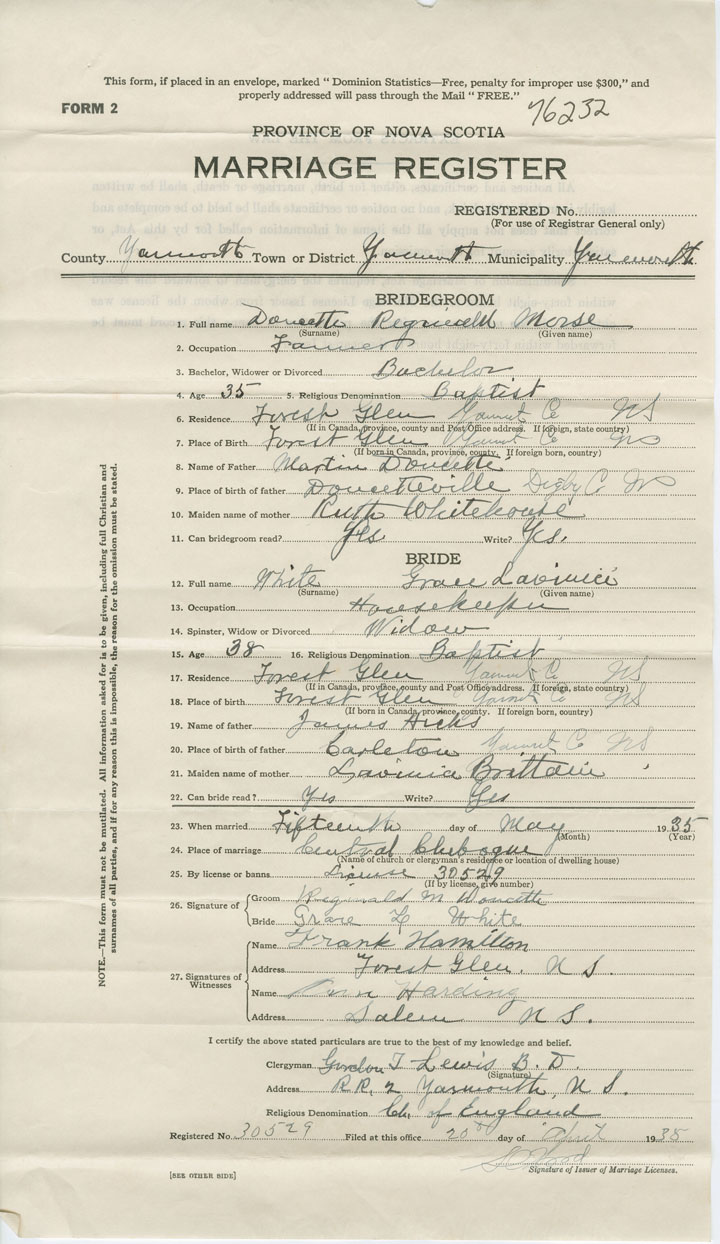 This form, if placed in an envelope, marked “ Dominion Statistics—Free, penalty for improper use $300,” and
properly addressed will pass through the Mail “ FREE.”
FORM 2
76232
PROVINCE OF NOVA SCOTIA
MARRIAGE REGISTER
REGISTERED No.
(For use of Registrar General only)
County Yarmouth Town or District Yarmouth Municipality Yarmouth
BRIDEGROOM
1. Full name Doucette Reginald Morse
(Surname) (Given name)
2. Occupation Farmer
3. Bachelor, Widower or Divorced Bachelor
4. Age 35 5. Religious Denomination Baptist
6. Residence Forest Glen Yarmt Co NS
(If in Canada, province, county and Post Office address. If foreign, state country)
7. Place of Birth Forest Glen Yarmt Co NS
(If born in Canada, province, county. If foreign born, country)
8. Name of Father Martin Doucette
9. Place of birth of father Doucetteville Digby C NS
10. Maiden name of mother Ruth Whitehouse
11. Can bridegroom read? Yes Write? Yes.
BRIDE
12. Full name White Grace Lavinia
(Surname) (Given name)
13. Occupation Housekeeper
14. Spinster, Widow or Divorced Widow
15. Age 38 16. Religious Denomination Baptist
17. Residence Forest Glen Yarmt Co NS
(If in Canada, province, county and Post Office address. If foreign, state country)
18. Place of birth Forest Glen Yarmt Co NS
(If born in Canada, province, county. If foreign born, country)
19. Name of father James Hicks
20. Place of birth of father Carleton Yarmt C NS
21. Maiden name of mother Lavinia Brittain
22. Can bride read? Yes Write? Yes
23. When married Fifteenth day of May 1935
(Month) (Year)
24. Place of marriage Central Chebogue
(Name of church or clergyman's residence or location of dwelling house)
25. By license or banns License 30529
(If by license, give number)
26. Signature of Groom Reginald M Doucette
Bride Grace L White
27. Signatures of Witnesses
Name Frank Hamilton
Address Forest Glen, N S.
Name Harding
Address Salem N S.
I certify the above stated particulars are true to the best of my knowledge and belief.
Clergyman Gordon T Lewis B. D.
(Signature)
Address R.R. 2 Yarmouth, N S.
Religious Denomination Ch. of England
Registered No. 30529 Filed at this office 20th day of April 1935
Signature of Issuer of Marriage Licenses.
[SEE OTHER SIDE]
NOTE.—This form must not be mutilated. All information asked for is to be given, including full Christian and
surnames of all parties, and if for any reason this is impossible, the reason for the omission must be stated.